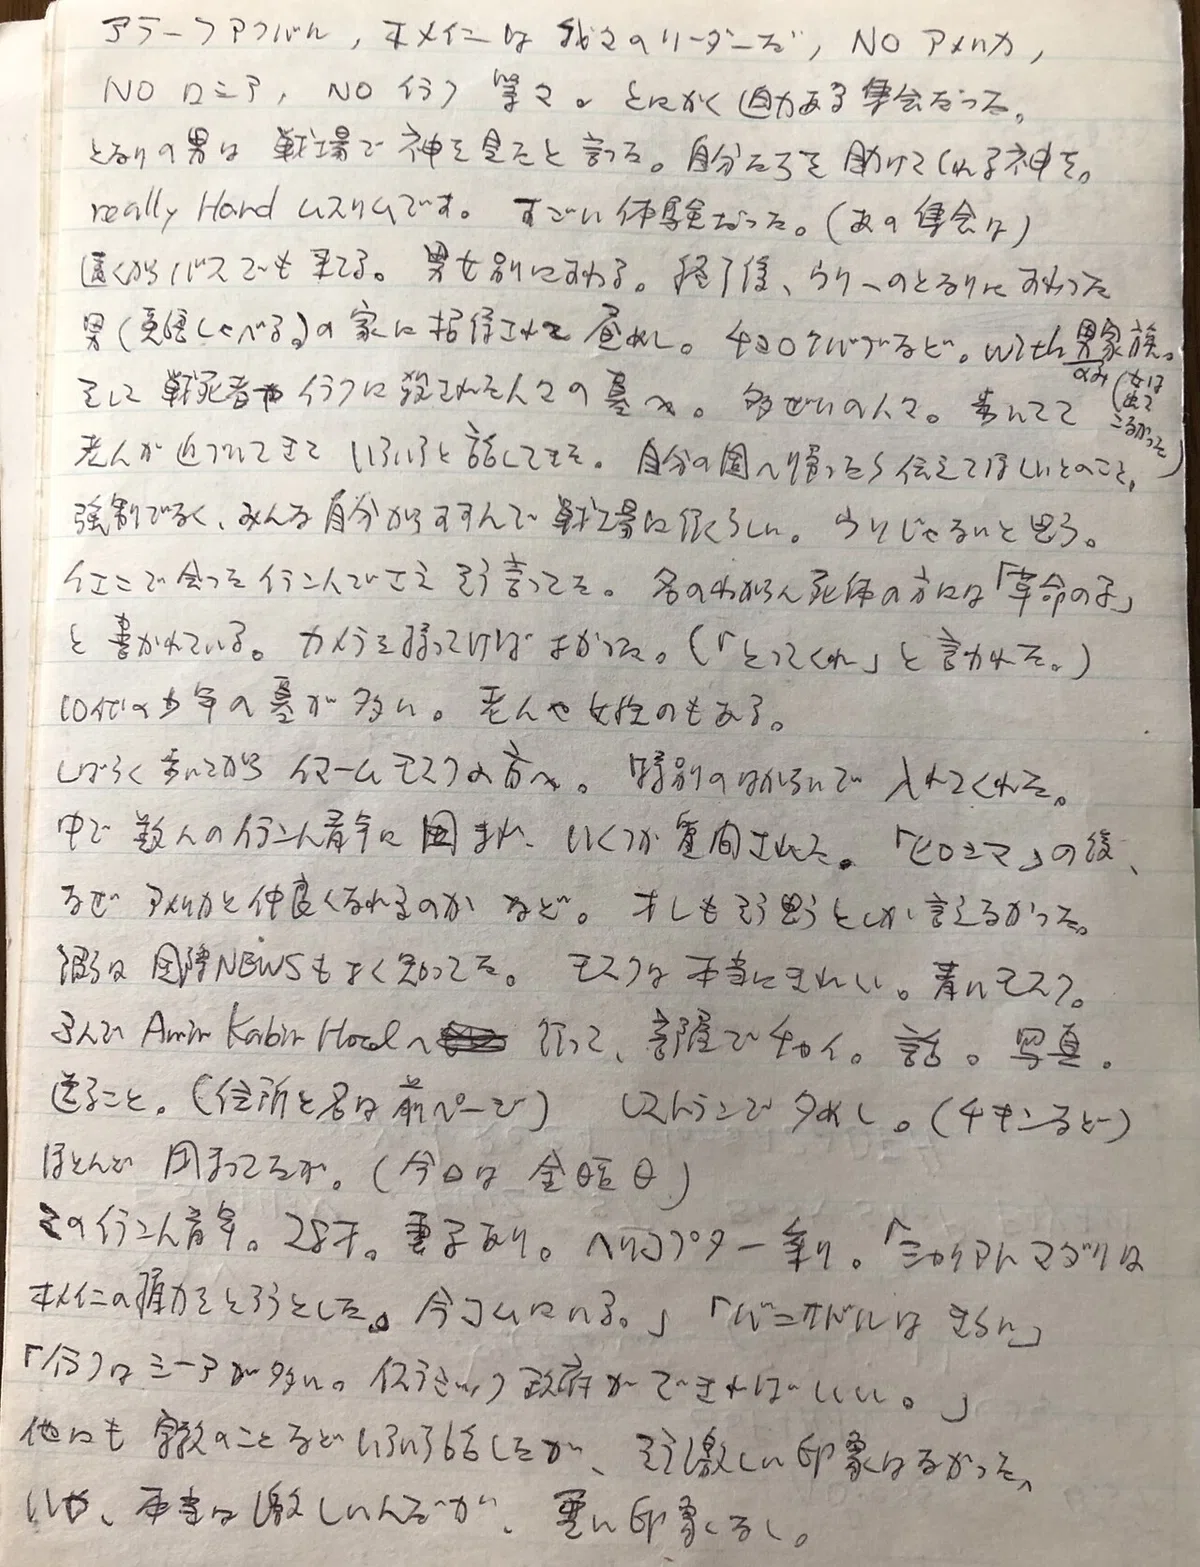 アラーフアクバル，ホメイニは我々のリーダーだ，NO アメリカ，
NO ロシア，NO イラク 等々。とにかく迫力ある集会だった。
となりの男は戦場で神を見たと言った。自分たちを助けてくれる神を。
really Hard ムスリムです。すごい体験だった。(あの集会は)
遠くからバスでも来てる。男女別にすわる。終了後、ウリへのとなりにすわった
男(英語しゃべる。)の家に招待されて昼めし。チェロケバブなど。with 男家族。のみ(女は出てこなかった)
そして戦死者やイラクに殺された人々の墓へ。多ぜいの人々。歩いてて
老人が近づいてきていろいろと話してきた。自分の国へ帰ったら伝えてほしいとのこと。
強制でなく、みんな自分からすすんで戦場に行くらしい。うそじゃないと思う。
で会ったイラン人でさえそう言ってた。名のわからん死体の方には「革命の子」
と書かれている。カメラを持ってけばよかった。(「とってくれ」と言われた。)
10代の少年の墓が多い。老人や女性のもある。
しばらく歩いてからイマームモスクの方へ。特別のはからいで入れてくれた。
中で数人のイラン人青年に囲まれ、いくつか質問された。「ヒロシマ」の後、
なぜアメリカと仲良くなれるのか など。オレもそう思うとしか言えなかった。
彼らは国際NEWSもよく知ってた。モスクは本当にきれい。青いモスク。
そんで Amir Kabir Hotel へ 行って、部屋でチャイ。話。写真。
送ること。(住所と名は前ページ) レストランで夕めし。(チキンなど)
ほとんど閉まってるが。(今日は金曜日)
そのイラン人青年。28才。妻子あり。ヘリコプター乗り。「シャリアトマダリは
ホメイニの権力をとろうとした。今コムにいる。」「バニサドルはきらい」
「イラクはシーアが多い。イスラミック政府ができればいい。」
他にも宗教のことなどいろいろ話したが、そう激しい印象はなかった。
いや、本当は激しいんだが、悪い印象なし。